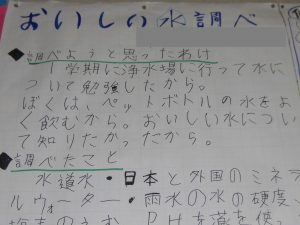 おいしい水調べ
◆調べようと思ったわけ
1学期に浄水場に行って水に
ついて勉強したから。
ぼくは、ペットボトルの水をよ
く飲むから。おいしい水につい
て知りたかったから。
◆調べたこと
水道水・日本と外国のミネラ
ルウォーター・雨水の水の硬度、
PHを薬を使っ